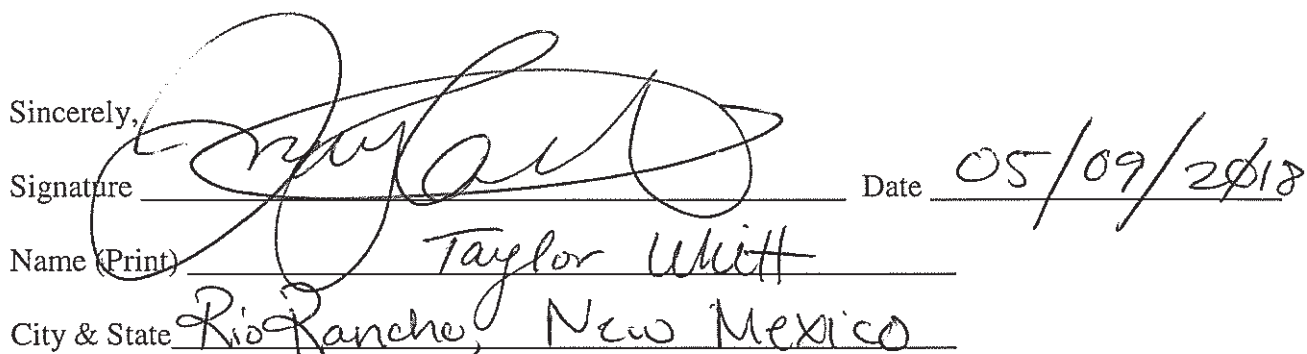 Sincerely,
Signature Date 05/09/2018
Name (Print) Taylor Whitt
City & State Rio Rancho, New Mexico